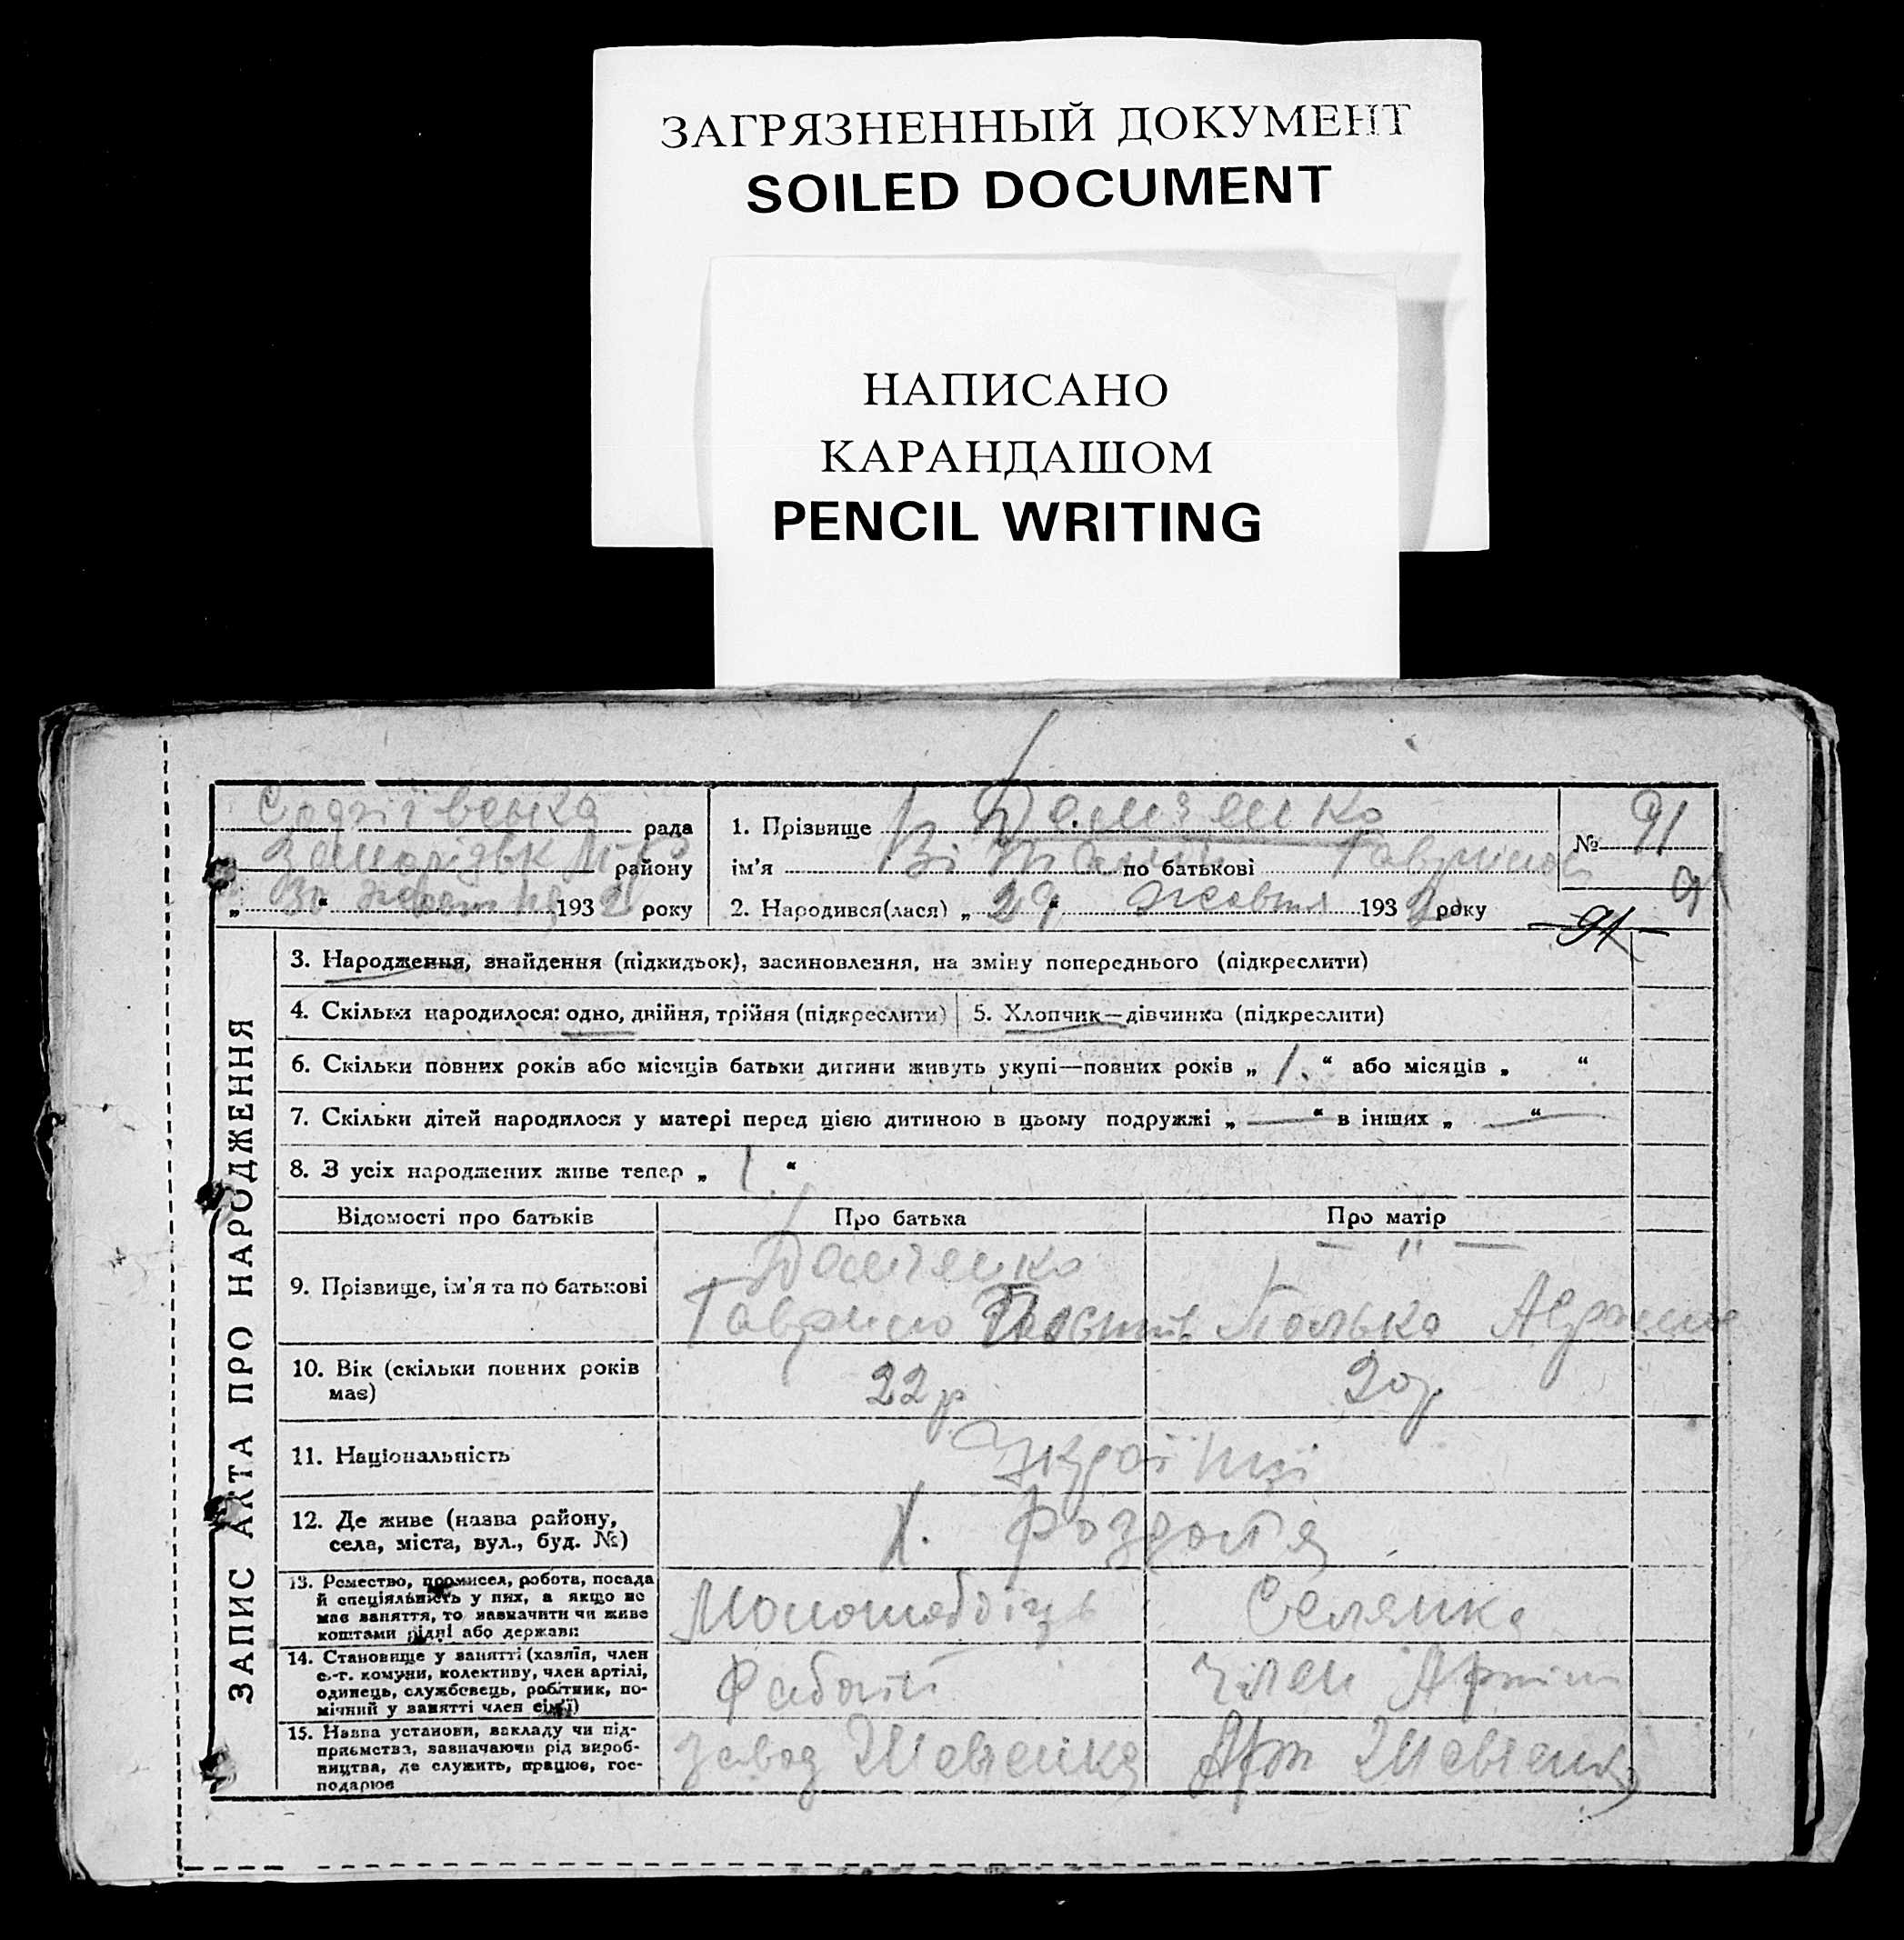 ЗАГРЯЗНЕННЫЙ ДОКУМЕНТ
SOILED DOCUMENT
НАПИСАНО
КАРАНДАШОМ
PENCIL WRITING
рада
району
„ 30 “ жовтня 1932 року
1. Прізвище Демченко
ім'я Віталій по батькові Гаврилов
2. Народився(лася) „ 29 “ жовтня 1932 року
№ 91
91
91
ЗАПИС АКТА ПРО НАРОДЖЕННЯ
3. Народження, знайдення (підкидьок), засиновлення, на зміну попереднього (підкреслити)
4. Скільки народилося: одно, двійня, трійня (підкреслити)
5. Хлопчик—дівчинка (підкреслити)
6. Скільки повних років або місяців батьки дитини живуть укупі—повних років „ 1. “ або місяців „ “
7. Скільки дітей народилося у матері перед цією дитиною в цьому подружжі „ — “ в інших „ — “
8. З усіх народжених живе тепер „ 1 “
Відомості про батьків
Про батька
Про матір
9. Прізвище, ім'я та по батькові
Демченко
— " —
Гаврило
10. Вік (скільки повних років
має)
22р
20р
11. Національність
Українці
12. Де живе (назва району,
села, міста, вул., буд. №)
Х.
13. Ремество, промисел, робота, посада
й спеціяльність у них, а якщо не
має заняття, то зазначити чи живе
коштами рідні або держави
Молотобоїць
Селянка
14. Становище у занятті (хазяїн, член
с.-г. комуни, колективу, член артілі,
одинець, службовець, робітник, по-
мічний у занятті член сім'ї)
член Артілі
15. Назва установи, закладу чи під-
приємства, зазначаючи рід вироб-
ництва, де служить, працює, гос-
подарює
завод Шевченка
Арт Шевченка